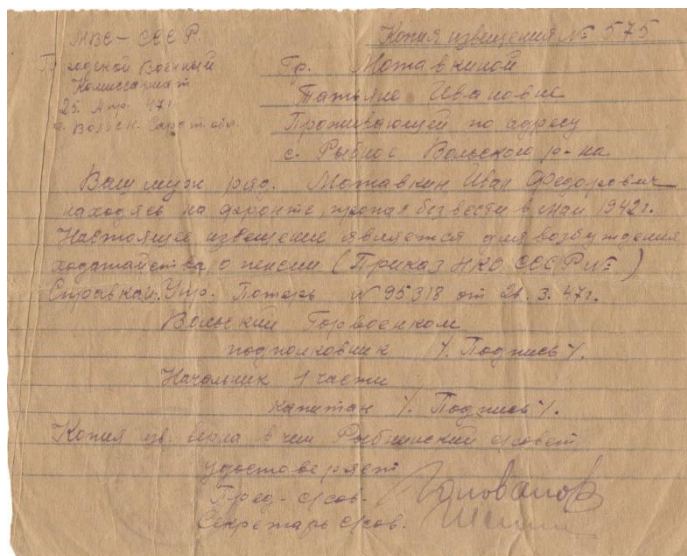 МВС - СССР
Городской Военный
Комиссариат
25. Апр. 47 г.
г. Вольск. Сарат. обл.
Копия извещения № 575
Гр. Мотавкиной
Татьяне Ивановне
Проживающей по адресу
с. Рыбное Вольского р-на
Ваш муж ряд. Мотавкин Иван Федорович
находясь на фронте, пропал без вести в май 1942 г.
Настоящее извещение является для возбуждения
ходатайства о пенсии (Приказ НКО СССР № )
Справкам. Упр. Потерь № 95318 от 3. 47 г.
Вольский Горвоенком
подполковник /. Подпись /.
Начальник 1 части
капитан /. Подпись /.
Копия изв. верна в чем Рыбнинский с/совет
удостоверяет
Пред- с/сов. Голованов
Секретарь с/сов.